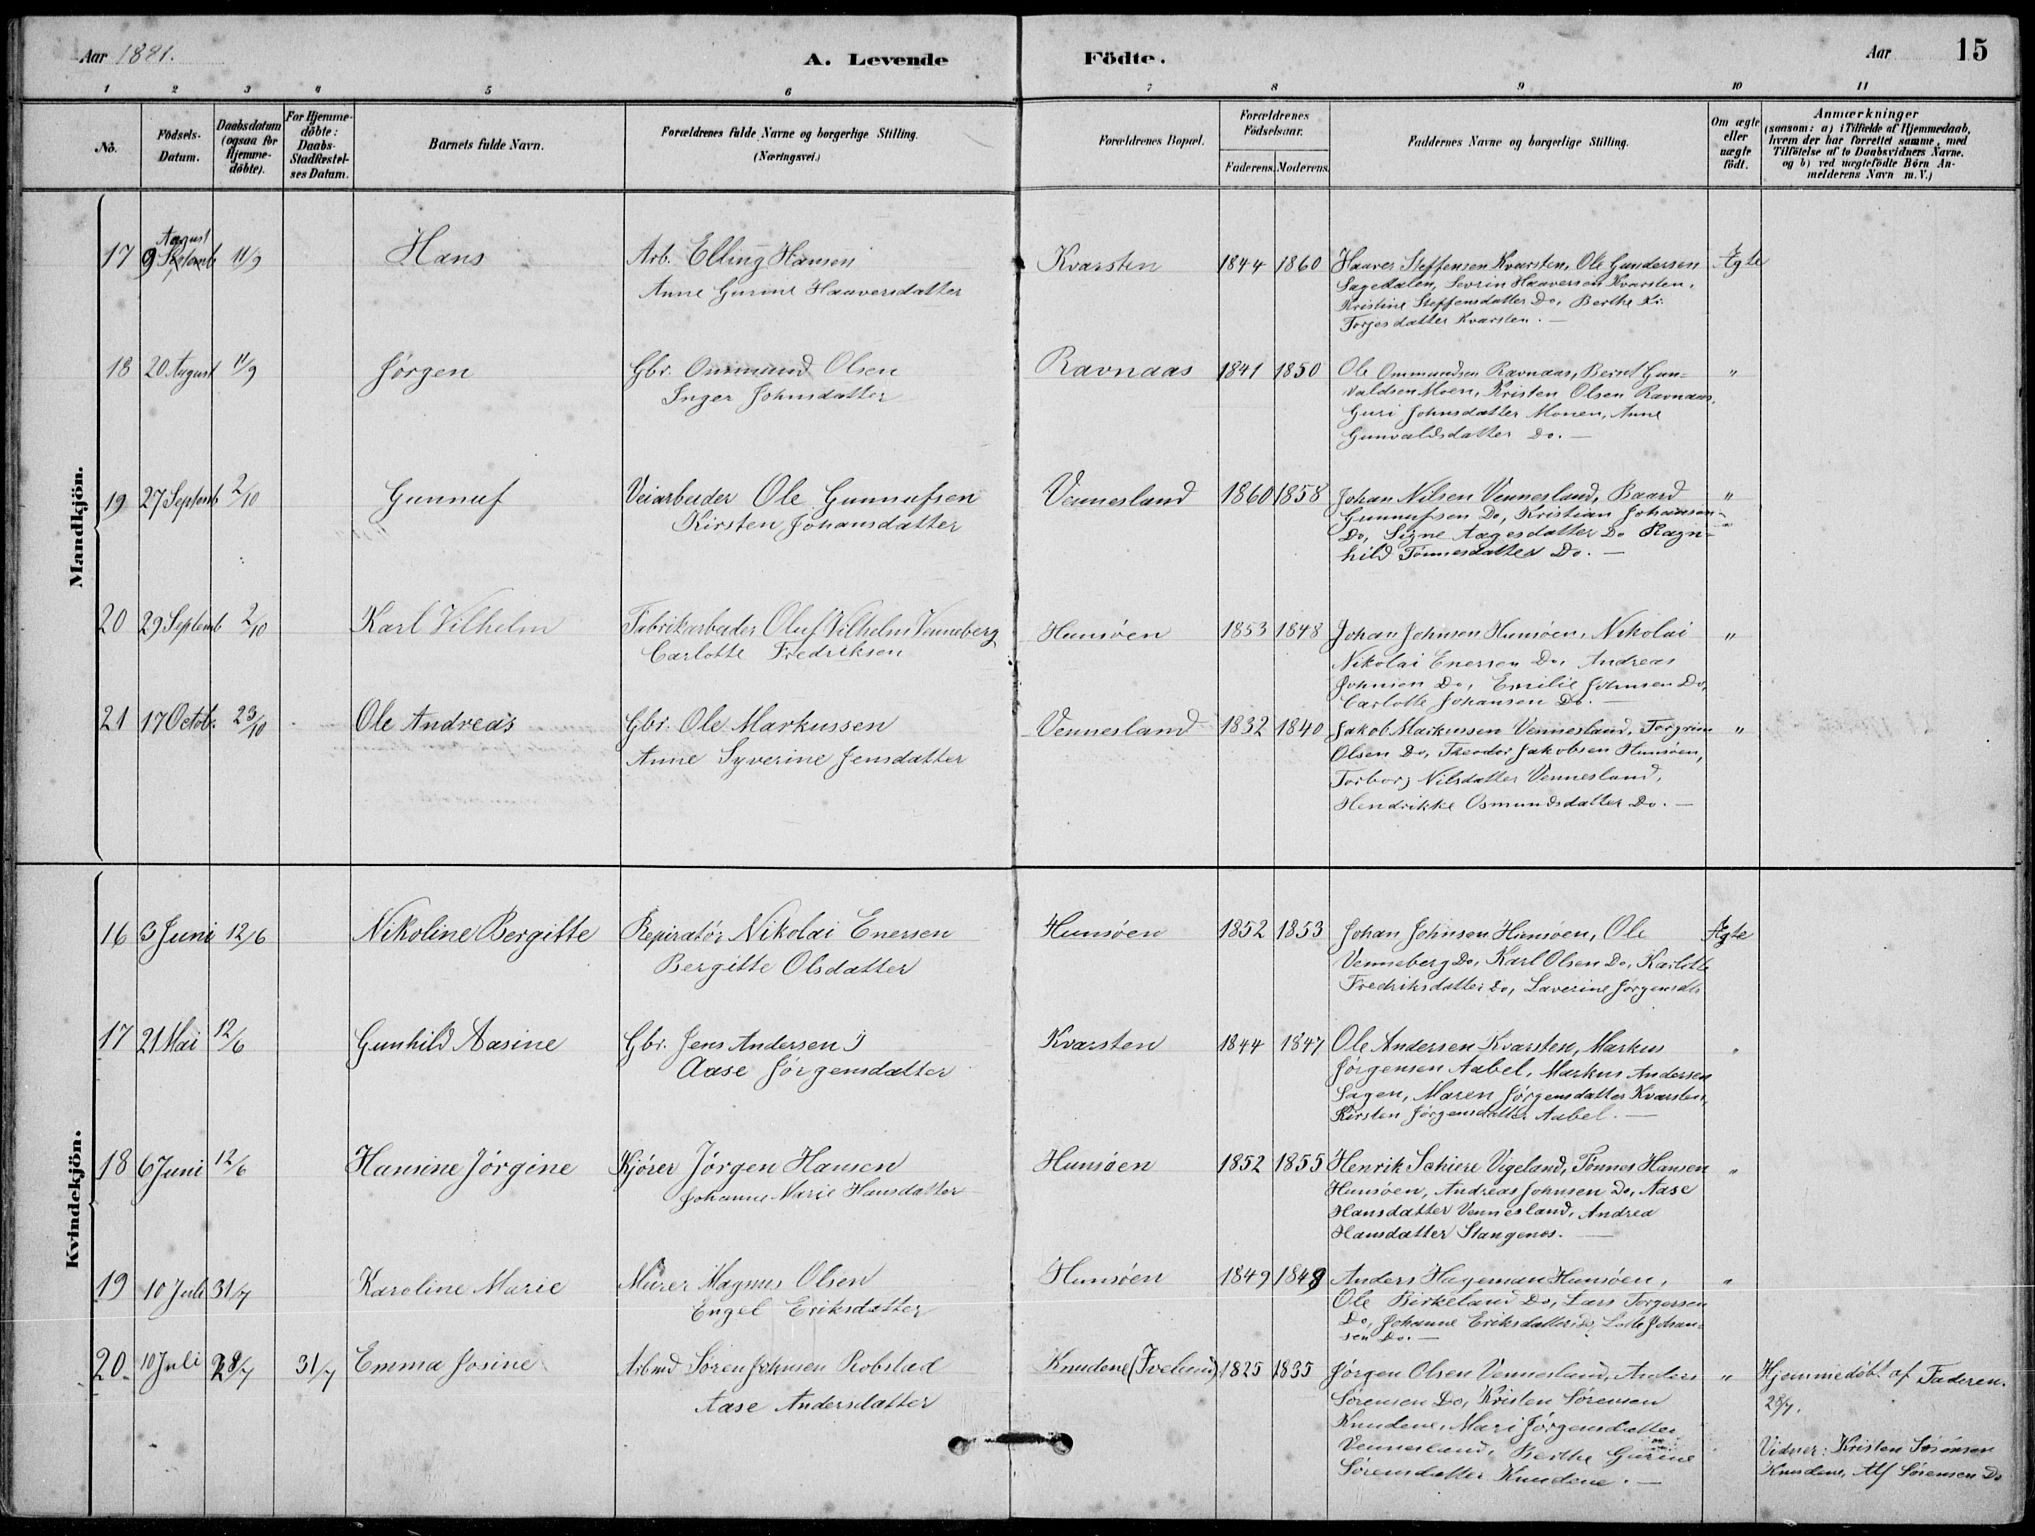 Aar 1881. A. Levende Födte. Aar 15
1 2 3 4 5 6 7 8 9 10 11
No. Födsels-Datum. Daabsdatum (ogsaa for Hjemme-döbte). For Hjemme-döbte: Daabs-Stadfæstel-ses Datum. Barnets fulde Navn. Forældrenes fulde Navne og borgerlige Stilling. (Næringsvei.) Forældrenes Bopæl. Forældrenes Födselsaar. Faderens. Moderens. Faddernes Navne og borgerlige Stilling. Om ægte eller uægte födt. Anmærkninger (saasom: a) i Tilfælde af Hjemmedaab, hvem der har forrettet samme, med Tilföielse af to Daabsvidners Navne. og b) ved uægtefödte Börn An-melderens Navn m. V.)
Mandkjön.
August
17 9 Septemb 11/9 Hans Arb. Elling Hansen Kvarsten 1844 1860 Haaver Steffensen Kvarsten, Ole Gundersen Ægte
Anne Gurine Haaversdatter Sagedalen, Sevrin Haaversen Kvarsten,
Kristine Steffensdatter Do, Berthe Kr.
Torjesdatter Kvarsten. —
18 20 August 11/9 Jørgen Gbr. Ommund Olsen Ravnaas 1841 1850 Ole Ommundsen Ravnaas, Bernt Gun- "
Inger Johnsdatter valdsen Moen, Kristen Olsen Ravnaas,
Guri Johnsdatter Monen, Anne
Gunvaldsdatter Do. —
19 27 Septemb 2/10 Gunnuf Veiarbeider Ole Gunnufsen Vennesland 1860 1858 Johan Nilsen Vennesland, Baard "
Kirsten Johansdatter Gunnufsen Do, Kristian Johansen
Do, Signe Aagesdatter Do Ragn-
hild Tønnesdatter Do. —
20 29 Septemb 2/10 Karl Vilhelm Fabrikarbeider Oluf Vilhelm Venneberg Hunsøen 1853 1848 Johan Johnsen Hunsøen, Nikolai "
Carlotte Fredriksen Nikolai Enersen Do, Andreas
Johnsen Do, Emilie Johnsen Do,
Carlotte Johansen Do. —
21 17 Octob. 23/10 Ole Andreas Gbr. Ole Markussen Vennesland 1832 1840 Jakob Markussen Vennesland, Torgrim "
Anne Syverine Jensdatter Olsen Do, Theodor Jakobsen Hunsøen,
Torborg Nilsdatter Vennesland,
Hendrikke Osmundsdatter Do. —
Kvindekjön.
16 3 Juni 12/6 Nikoline Bergitte Repiratør Nikolai Enersen Hunsøen 1852 1853 Johan Johnsen Hunsøen, Ole Ægte
Bergitte Olsdatter Venneberg Do, Karl Olsen Do, Karlotte
Fredriksdatter Do, Laverine Jørgensdt.
17 21 Mai 12/6 Gunhild Aasine Gbr. Jens Andersen Kvarsten 1844 1847 Ole Andersen Kvarsten, Markus "
Aase Jørgensdatter Jørgensen Aabel, Markus Andersen
Sagen, Maren Jørgensdatter Kvarsten,
Kirsten Jørgensdatter Aabel. —
18 6 Juni 12/6 Hansine Jørgine Kjører Jørgen Hansen Hunsøen 1852 1855 Henrik Vigeland, Tønnes Hansen "
Johanne Marie Hansdatter Hunsøen, Andreas Johnsen Do, Aase
Hansdatter Vennesland, Andrea
Hansdatter Stangenes. —
19 10 Juli 31/7 Karoline Marie Murer Magnus Olsen Hunsøen 1849 1848 Anders Hageman Hunsøen, "
Engel Eriksdatter Ole Birkeland Do, Lars Torgersen
Do, Johanne Eriksdatter Do, Lotte Johan-
sen Do. —
20 10 Juli 28/7 31/7 Emma Josine Arbmd Søren Johnsen Robstad Knudene (Iveland) 1825 1835 Jørgen Olsen Vennesland, Anders " Hjemmedøbt af Faderen.
Aase Andersdatter Sørensen Do, Kristen Sørensen 28/7.
Knudene, Mari Jørgensdatter
Vennesland, Berthe Gurine Vidner: Kristen Sørensen
Sørensdatter Knudene. — Knudene, Alf Sørensen Do